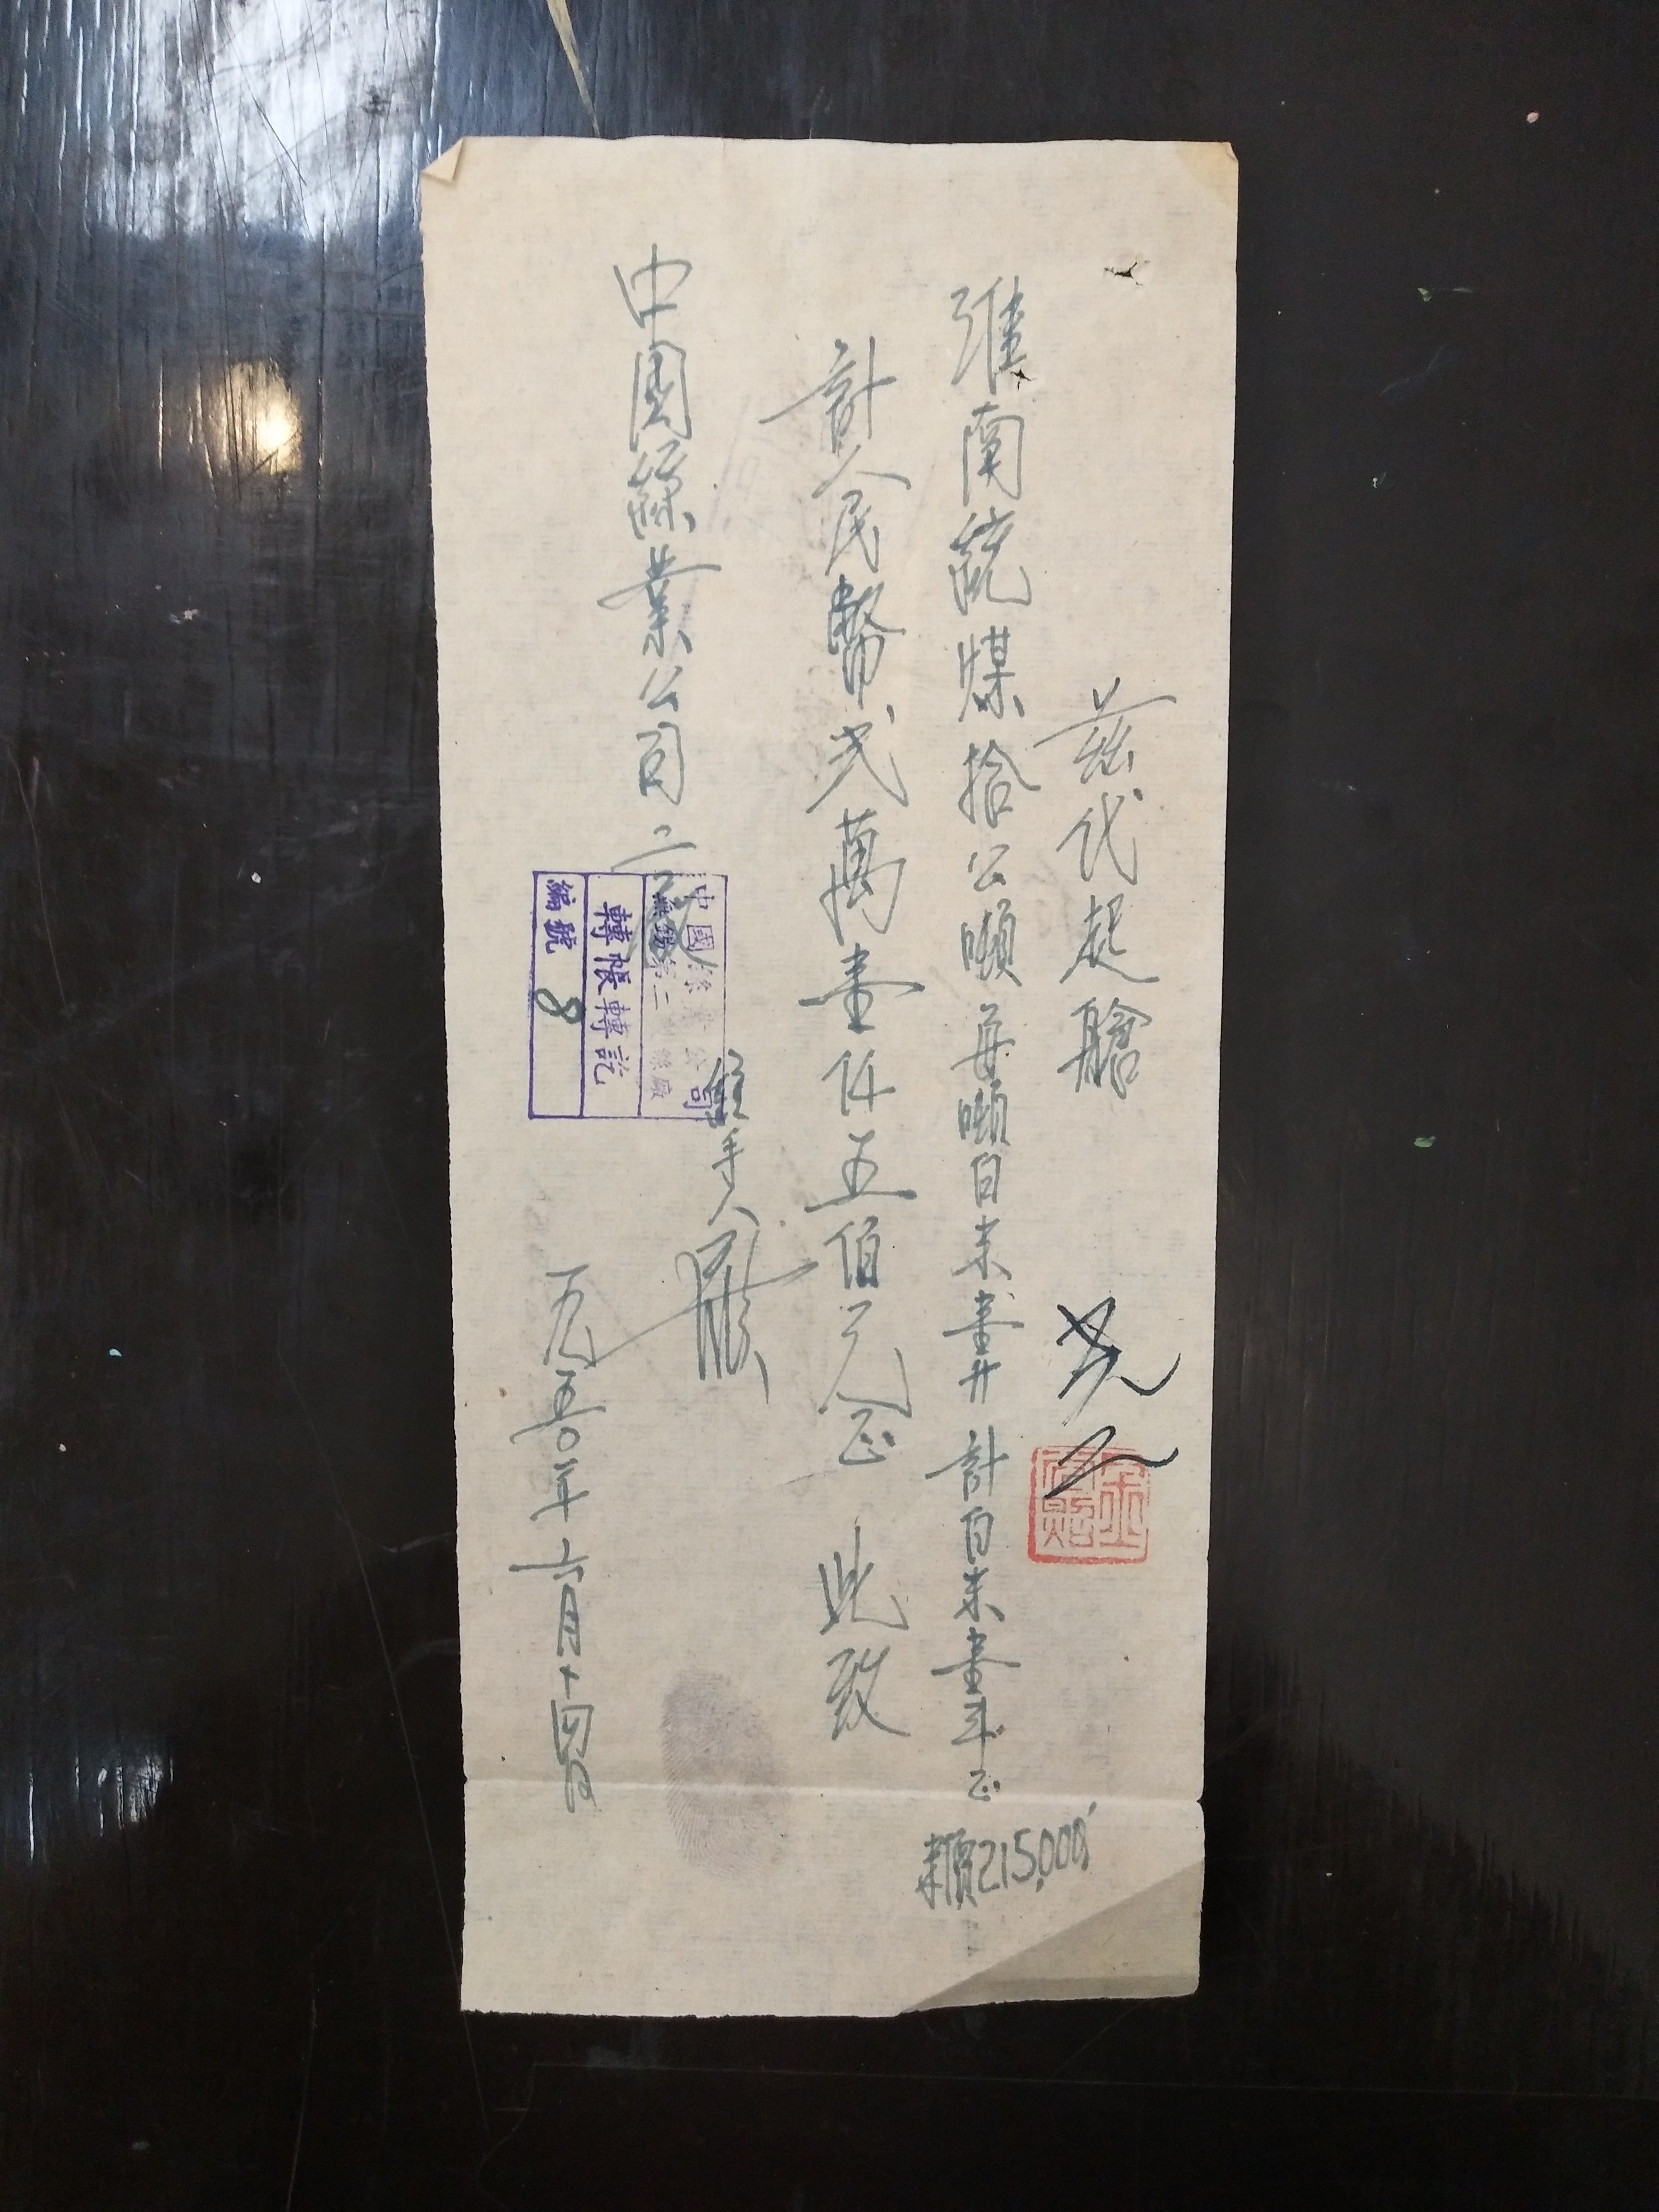 茲代起艙
淮南統煤拾公噸每噸白米壹升計白米壹斗正
米價215,000
計人民幣弍萬壹仟五佰元正 此致
中國絲業公司二廠
經手人
中國絲業公司
無錫第二製絲廠
轉帳轉訖
編號 8
一九五〇年六月十四日